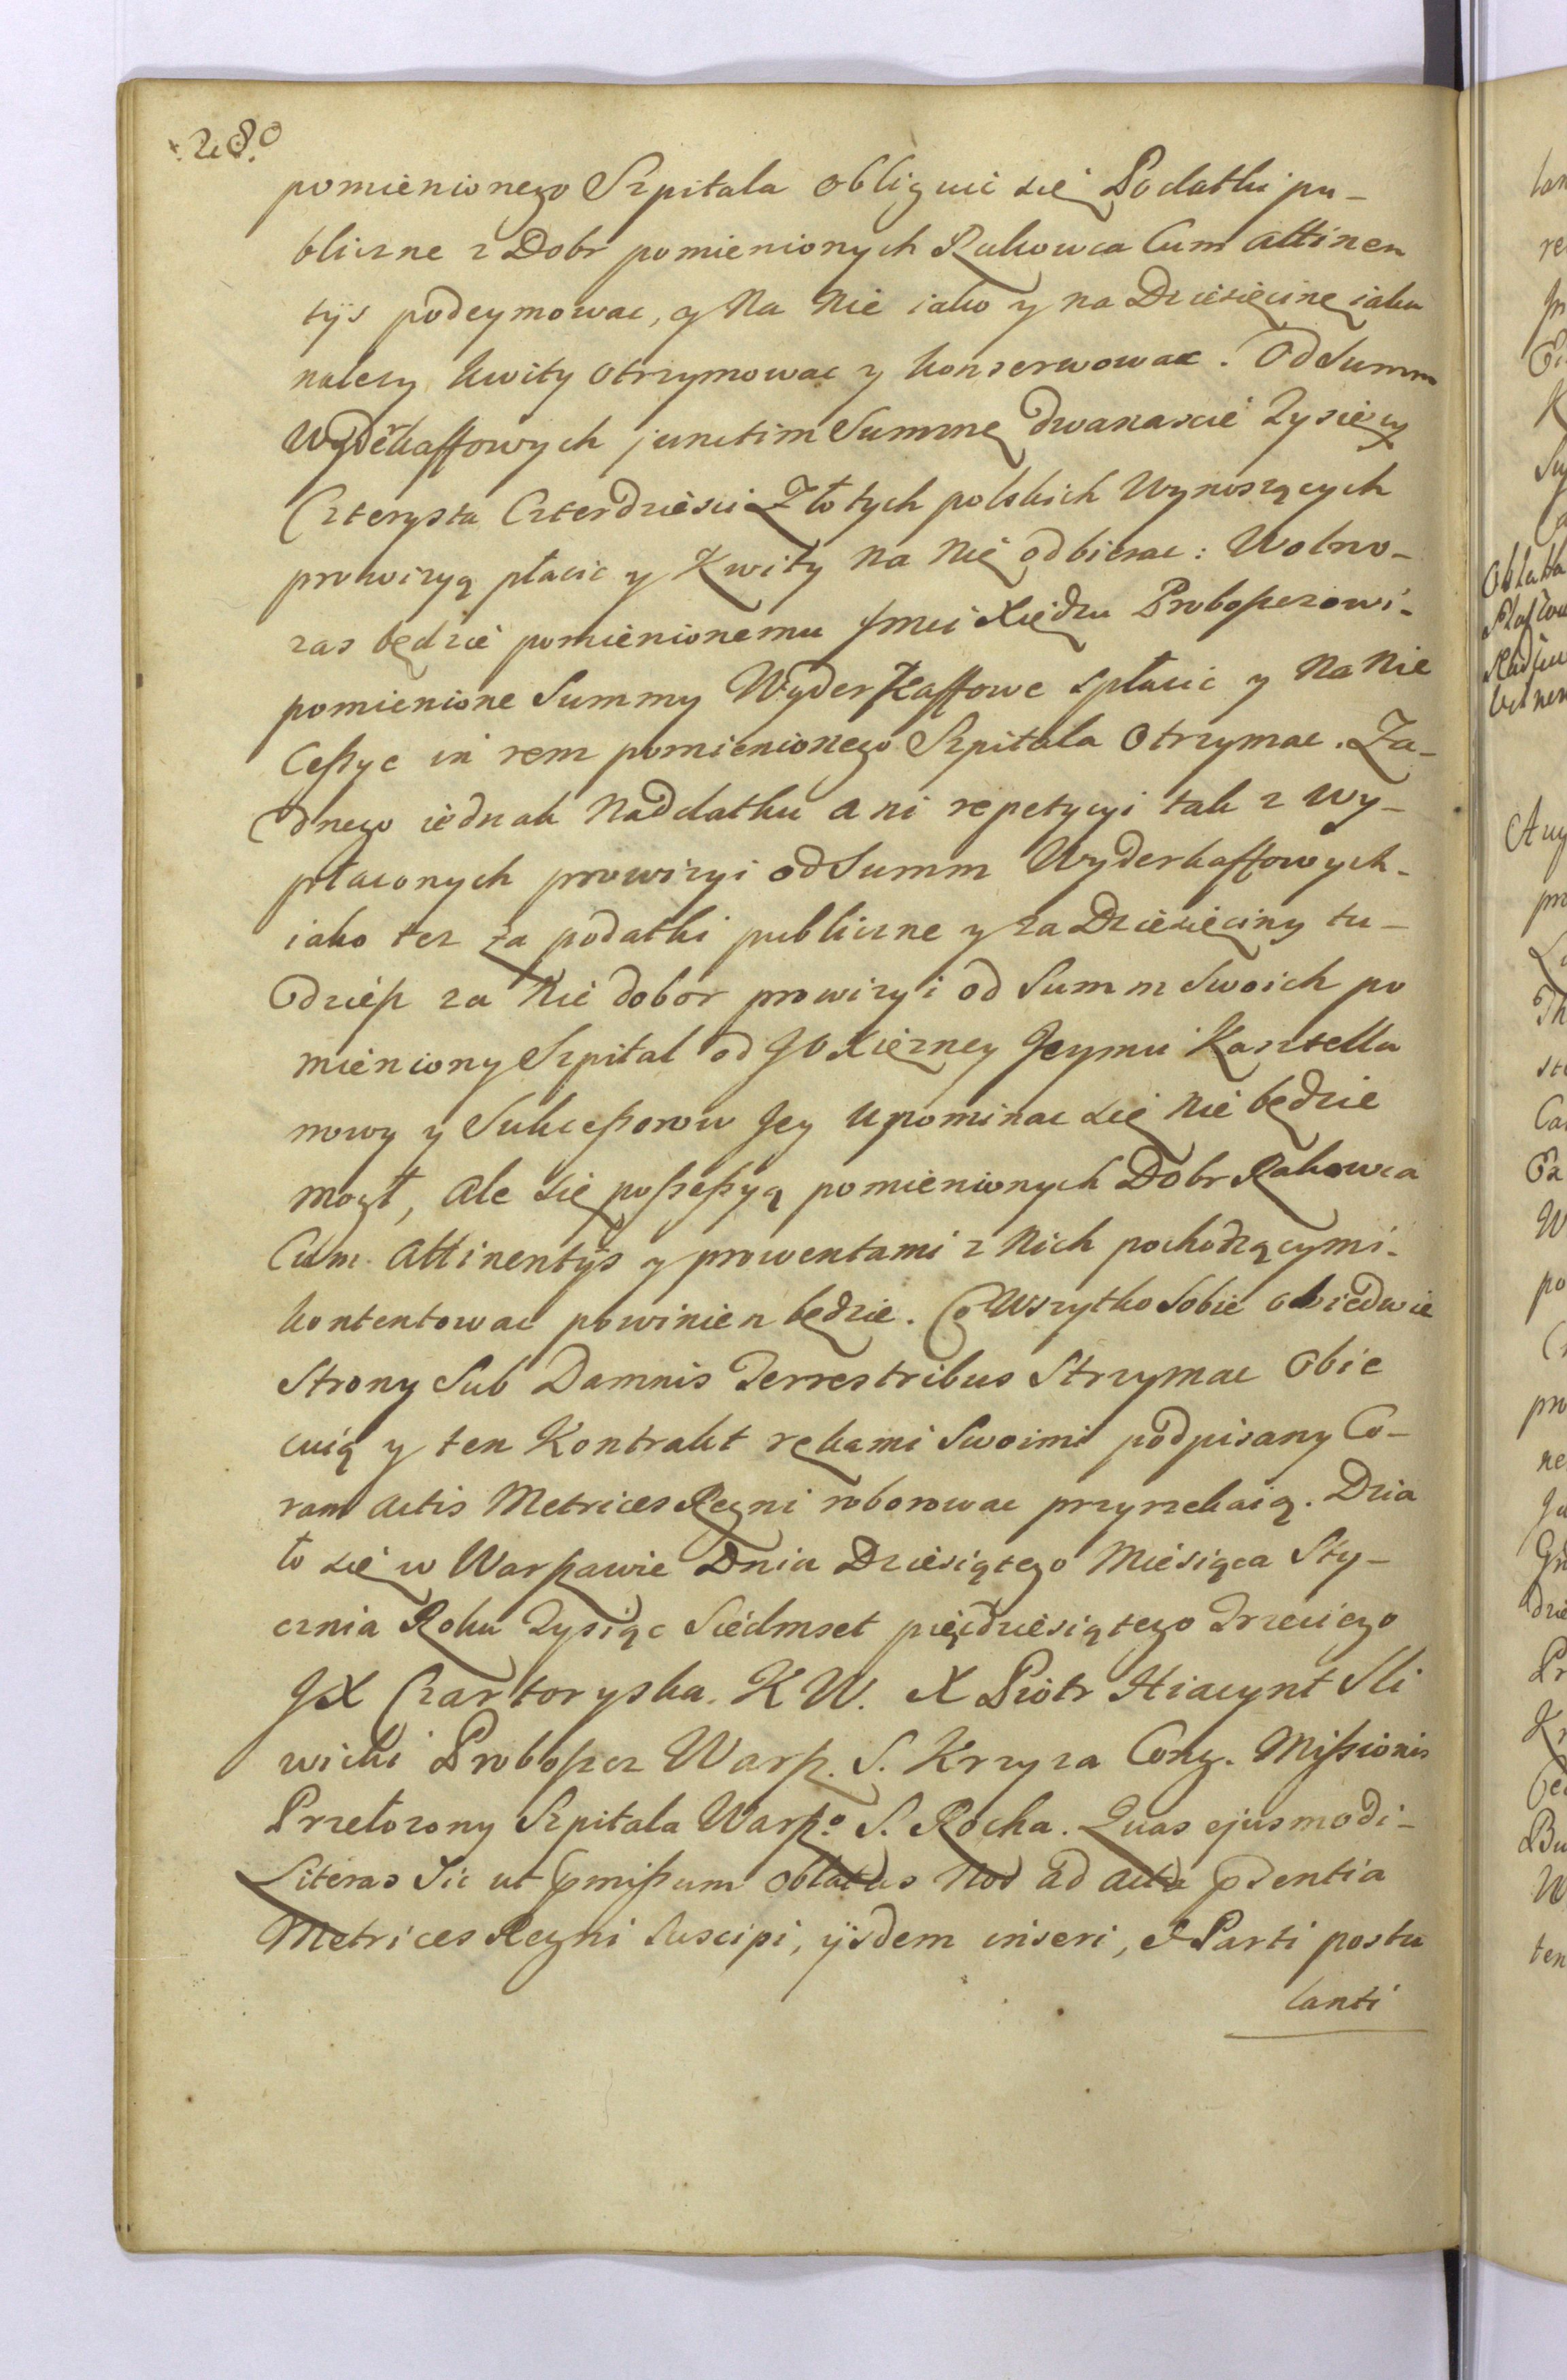 280
pomienionego Szpitala obliguie się Podatki pu-
bliczne z Dobr pomienionych Rakowca Cum attinen
tÿs podeymowac, y Na Nie iako y na Dziesięcinę iako
nalezy kwity otrzymowac y konserwowac. Od Summ
Wyderkaffowych junctim Summę dwanascie Tysięcy
Czterysta Czterdziesci Złotych polskich Wynoszących
prowizyą płacic y Kwity na Nię odbierac: Wolno-
zas będzie pomienionemu Jmci Xiędzu Proboszczowi-
pomienione Summy Wyderkaffowe spłacic y Na Nie
Cessye in rem pomienionego Szpitala Otrzymac. Za-
dnego iednak Naddatku ani repetycyi tak z wy-
płaconych prowizyi od Summ Wyderkaffowych-
iako tez za podatki publiczne y za Dziesięciny tu-
dziesz za Nie dobor prowizyi od Summ Swoich po
mieniony Szpital od JO Xięzney Jeymci Kanzella
nowy y Sukcessorow Jey upominac się Nie będzie
mogł, ale się possessyą pomienionych Dobr Rakowca
Cum attinentÿs y prowentami z Nich pochodzącymi-
kontentowac powinien będzie. Co Wszytko Sobie obiedwie
Strony Sub Damnis Terrestribus Strzymac Obie
cuią y ten Kontrakt rękami Swoimi podpisany Co-
ram actis Metrices Regni roborowac przyrzekaią. Dzia
ło się w Warszawie Dnia Dziesiątego Miesiąca Sty-
cznia Roku Tysiąc Siedmset pięćdziesiątego Trzeciego
JX Czartoryska. K W. X Piotr Hiacynt Sli
wicki Proboszcz Warsz. S. Krzyza Cong. Missionis
Przełozony Szpitala Warszo S. Rocha. Quas ejusmodi-
Literas Sic ut pmissum oblatas Nos ad acta psentia
Metrices Regni suscipi, ÿsdem inseri, et Parti postu
lanti